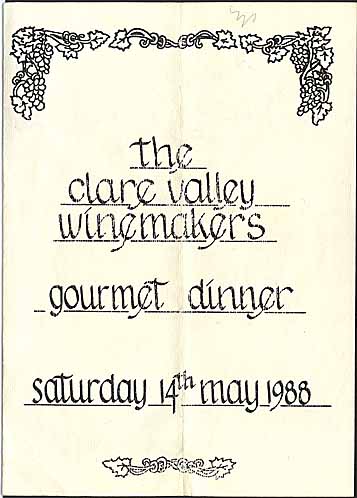 the
clare valley
winemakers
gourmet dinner
saturday 14th may 1988